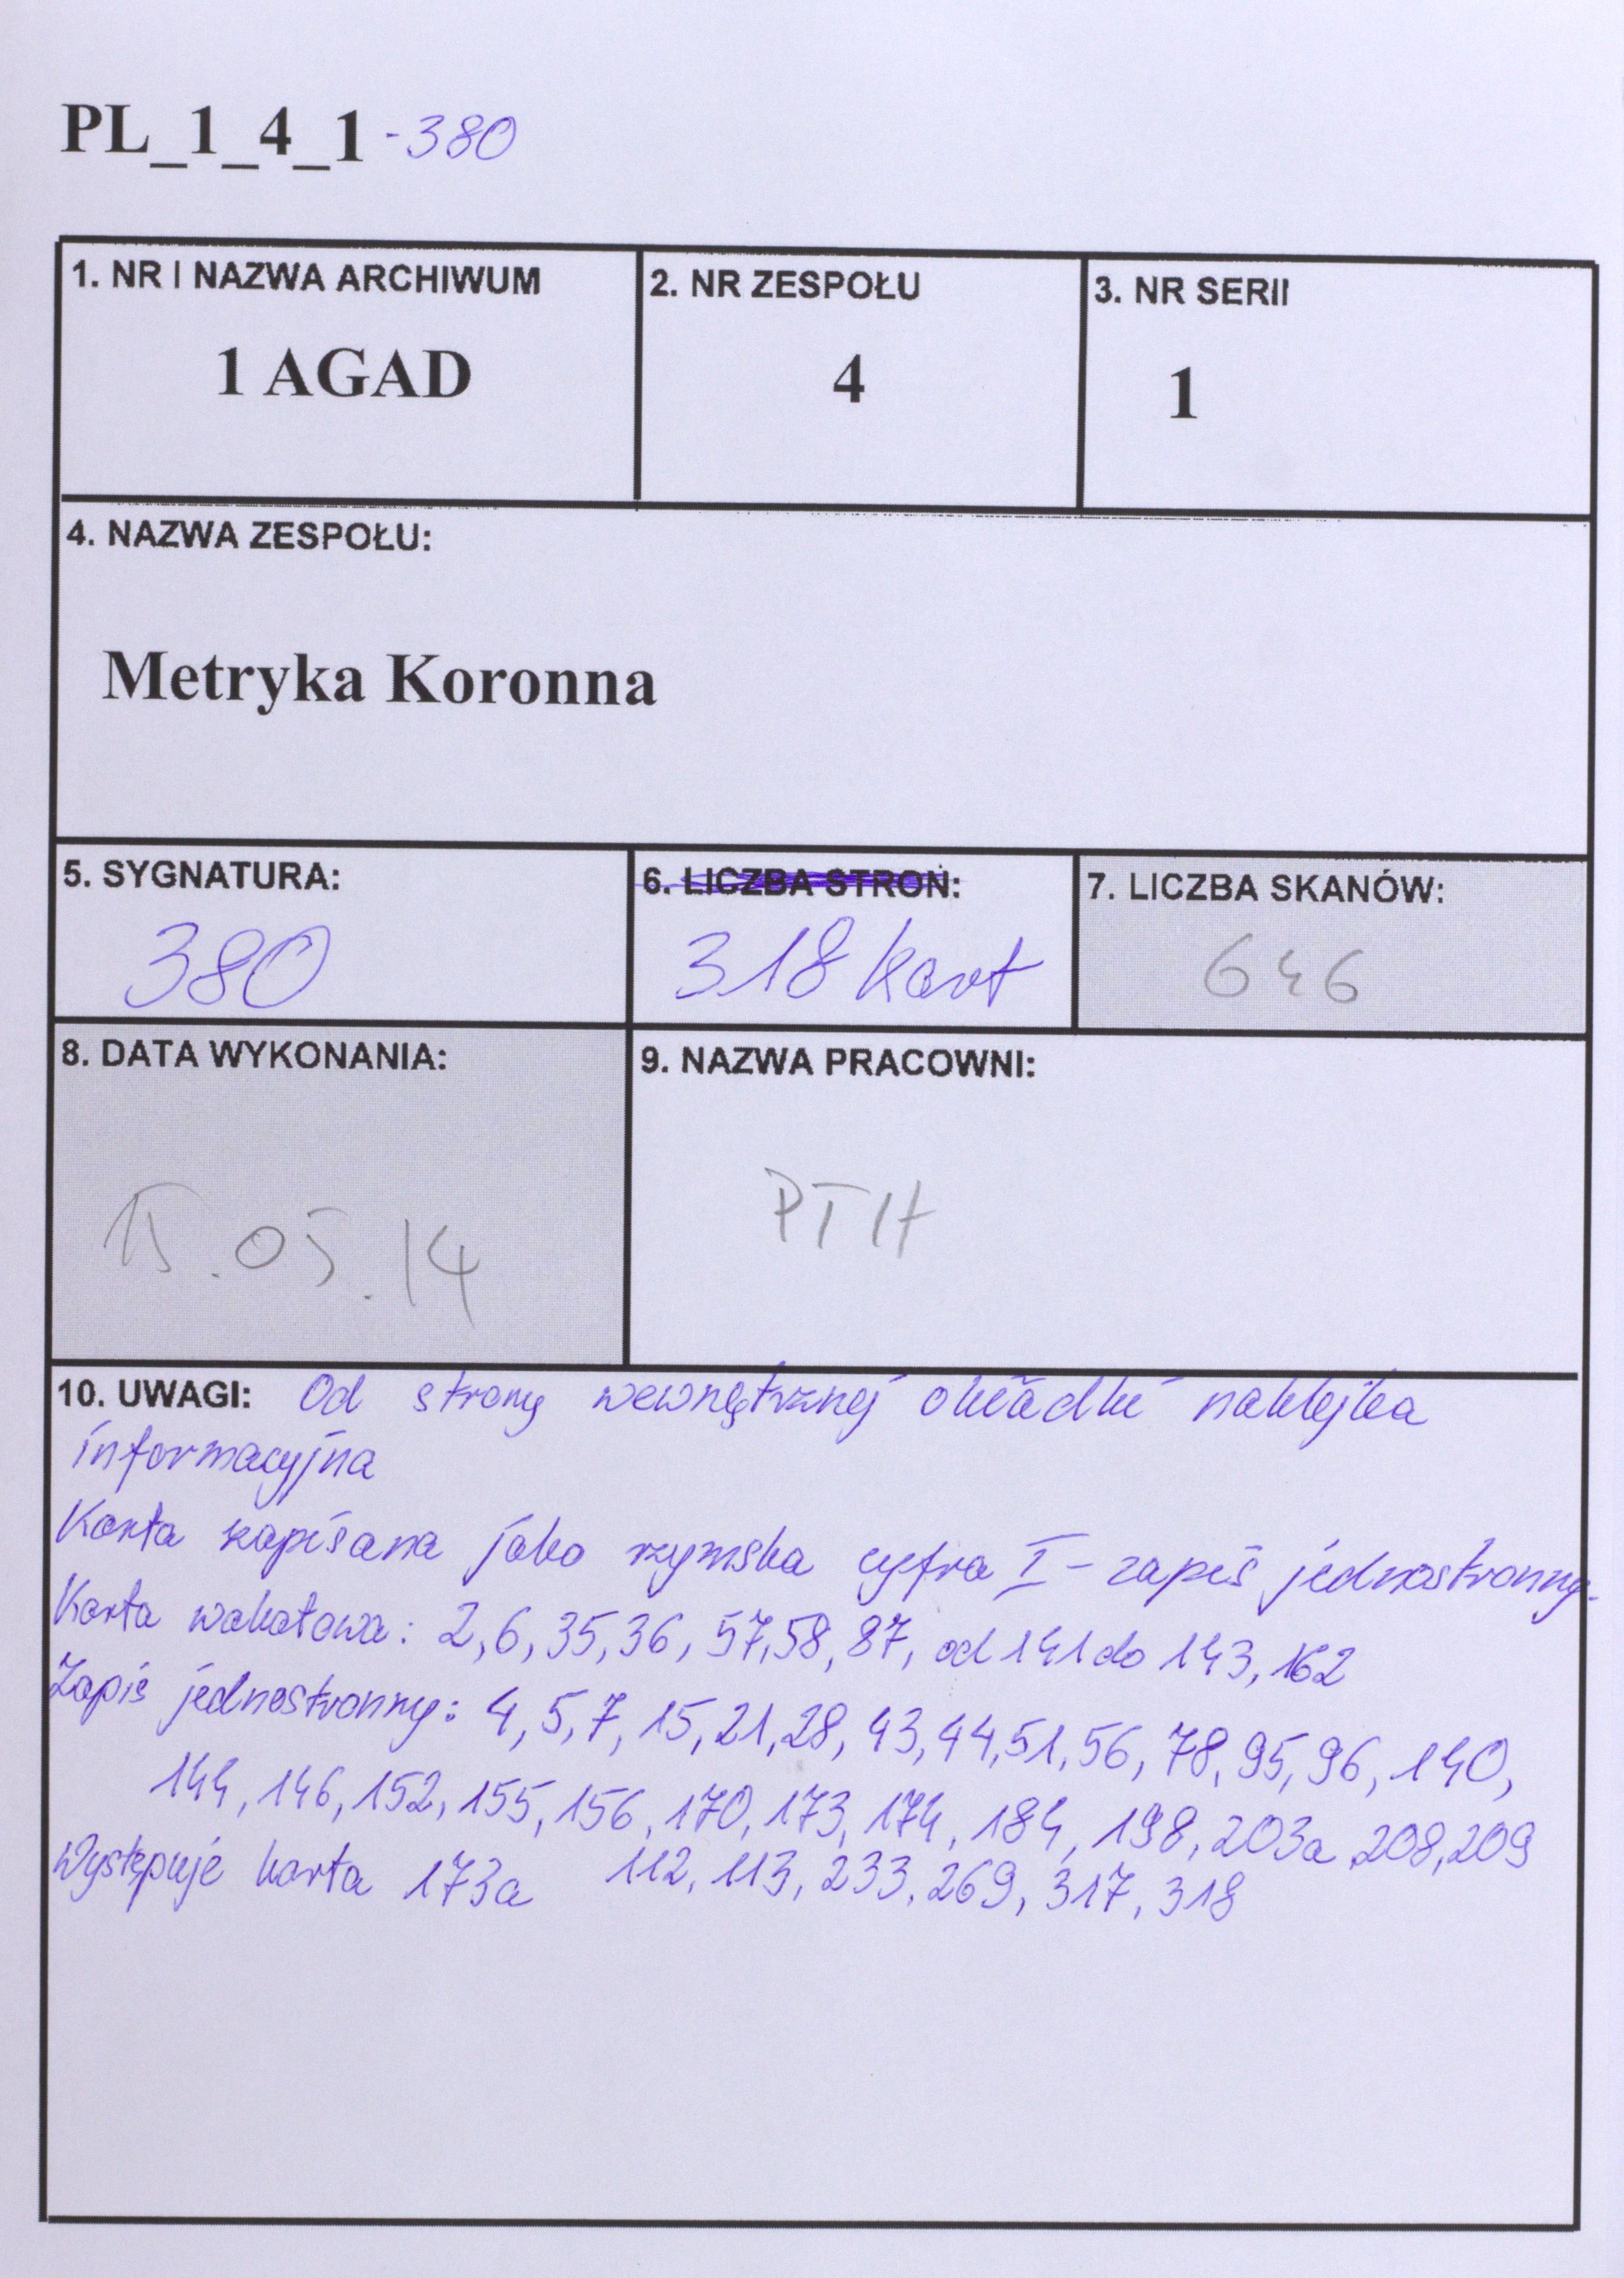 PL_1_4_1 -380
1. NR I NAZWA ARCHIWUM
1 AGAD
2. NR ZESPOŁU
4
3. NR SERII
1
4. NAZWA ZESPOŁU:
Metryka Koronna
5. SYGNATURA:
380
6. LICZBA STRON:
318 kart
7. LICZBA SKANÓW:
646
8. DATA WYKONANIA:
15.05.14
9. NAZWA PRACOWNI:
PTH
10. UWAGI: Od strony wewnętrznej okładki naklejka
informacyjna
Karta zapisana jako rzymska cyfra I - zapis jednostronny.
Karta wakatowa: 2, 6, 35, 36, 57, 58, 87, od 141 do 143, 162
Zapis jednostronny: 4, 5, 7, 15, 21, 28, 43, 44, 51, 56, 78, 95, 96, 140,
144, 146, 152, 155, 156, 170, 173, 174, 184, 198, 203a, 208, 209
Występuje karta 173a 112, 113, 233, 269, 317, 318